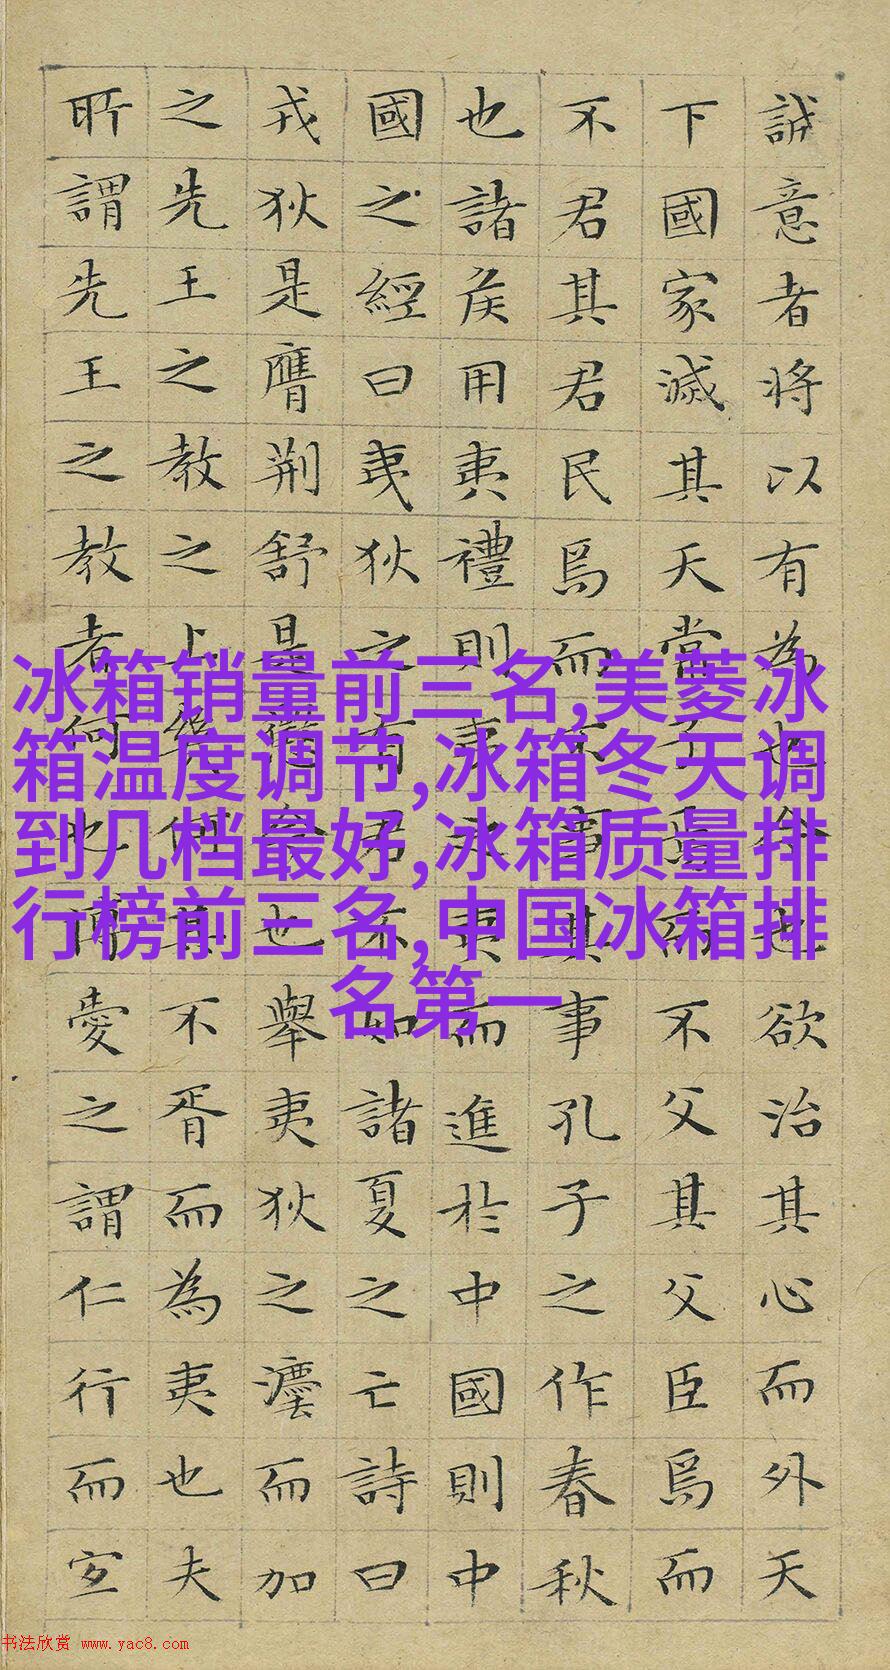 誠意者将以有為也今也欲治其心而外天
下國家滅其天常子焉而不父其父臣焉而
不君其君民焉而不事其事孔子之作春秋
也諸侯用夷禮則夷之夷而進於中國則中
國之經曰夷狄之有君不如諸夏之亡詩曰
戎狄是膺荆舒是懲今也舉夷狄之灋而加
之先王之教之上幾何其不胥而為夷也夫
所謂先王之教者何也博愛之謂仁行而宜
冰箱销量前三名,美菱冰
箱温度调节,冰箱冬天调
到几档最好,冰箱质量排
行榜前三名,中国冰箱排
名第一
书法欣赏 www.yac8.com